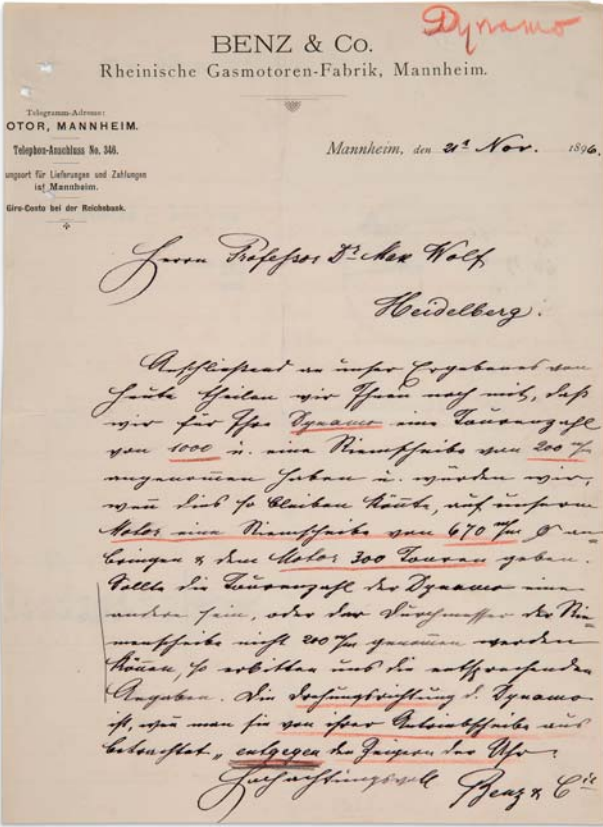 Dynamo
BENZ & Co.
Rheinische Gasmotoren-Fabrik, Mannheim.
Telegramm-Adresse:
OTOR, MANNHEIM.
Telephon-Anschluss No. 346.
ungsort für Lieferungen und Zahlungen
ist Mannheim.
Giro-Conto bei der Reichsbank.
Mannheim, den 21t Nov. 1896.
Herrn Professor Dr. Max Wolf
Heidelberg.
Anschließend an unser Ergebenes von
heute theilen wir Ihnen noch mit, daß
wir für Ihre Dynamo eine Tourenzahl
von 1000 u. eine Riemscheibe von 200 m/m
angenommen haben u. würden wir,
wenn dies so bleiben könnte, auf unserm
Motor eine Riemscheibe von 670 m/m Ø an-
bringen & dem Motor 300 Touren geben.
Sollte die Tourenzahl der Dynamo eine
andere sein, oder der Durchmesser der Rie-
menscheibe nicht 200 m/m genommen werden
können, so erbitten uns die entsprechenden
Angaben. Die Drehungsrichtung d. Dynamo
ist, wenn man sie von ihrer Antriebscheibe aus
betrachtet „entgegen den Zeigern der Uhr.
Hochachtungsvoll Benz & Cie